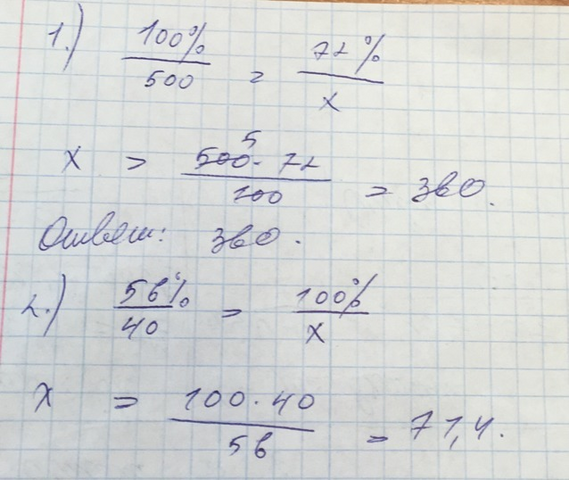 1.) 100% / 500 = 72% / x
x = 500 5 · 72 / 100 = 360.
Ответ: 360.
2.) 56% / 40 = 100% / x
x = 100 · 40 / 56 = 71,4.